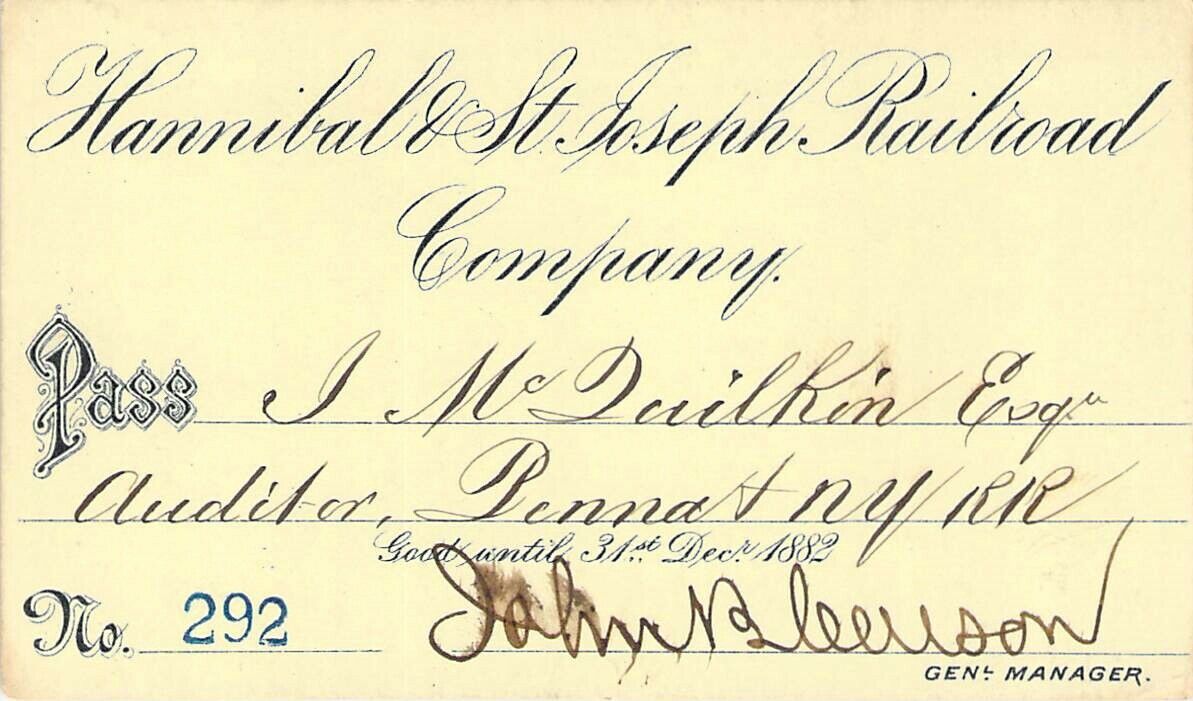 Hannibal & St. Joseph Railroad
Company.
Pass J Mc Quilkin Esqu
Auditor, Penna & NY RR
Good until 31st. Decr. 1882
No. 292 John B
GENL. MANAGER.